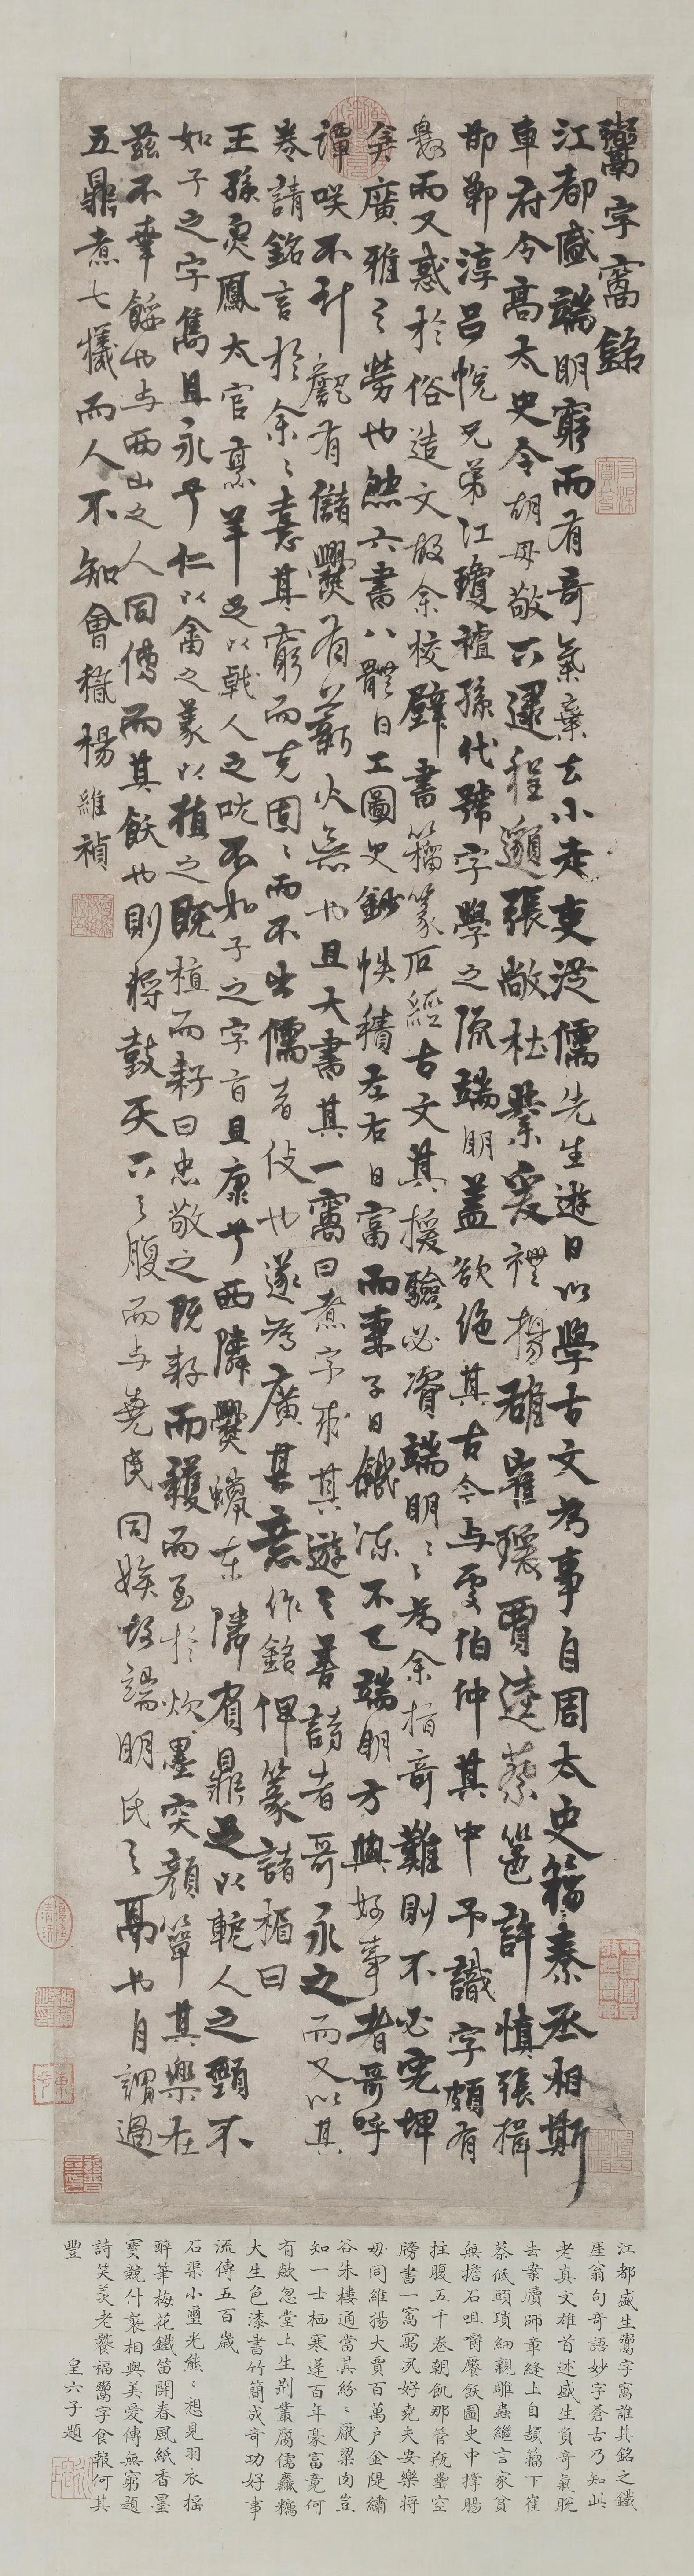 鬻字窩銘
江都盛端明窮而有奇氣棄去小走吏從儒先生遊日以學古文為事自周太史籀秦丞相斯
車府令高太史令胡毋敬下逮程邈張敞杜業爰禮揚雄崔瑗賈逵蔡邕許慎張揖
邯鄲淳呂忱兄弟江瓊襢孫代號字學之流端明蓋欲絕其古今与更伯仲其中予識字頗有
惎而又惑於俗造文故余校壁書籀篆石經古文其援驗必資端明〻為余指奇難則不必完埤
矣廣雅之勞也然六書八體日工圖史鈔帙積左右日富而妻子日饑凍不已端明方與好事者哥呼
譚咲不計甔有儲爨有薪火無也且大書其一窩曰煮字求其遊之善詩者哥永之而又以其
卷請銘言於余〻憙其窮而克固〻而不出儒者伎也遂為廣其意作銘俾篆諸楣曰
王孫炰鳳太官烹羊足以戟人之吭不如子之字旨且康兮西隣爨蠟東隣負鼎足以軶人之頸不
如子之字雋且永兮仁以畬之義以植之既植而耔曰忠敬之既耔而穫而至於炊墨突顏簞其樂在
茲不幸餒也与西山之人同傳而其飫也則將鼓天下之腹而与堯民同娭故端明氏之鬲也自謂過
五鼎煮七犧而人不知會稽楊維禎
江都盛生鬻字窩誰其銘之鐵
厓翁句奇語妙字蒼古乃知此
老真文雄首述盛生負奇氣脫
去案牘師章縫上自頡籀下崔
蔡低頭瑣細親雕蟲繼言家貧
無擔石咀嚼饜飫圖史中撐腸
拄腹五千卷朝飢那管瓶罍空
牓書一窩寓夙好堯夫安樂將
毋同維揚大賈百萬户金隄繡
谷朱樓通當其紛〻厭粱肉豈
知一士栖寒蓬百年豪富竟何
有歘忽堂上生荆叢腐儒麤糲
大生色漆書竹簡成奇功好事
流傳五百歲
石渠小璽光熊〻想見羽衣揺
醉筆梅花鐵笛開春風紙香墨
寶競什襲相與美愛傳無窮題
詩笑羨老饕福鬻字食報何其
豐 皇六子題